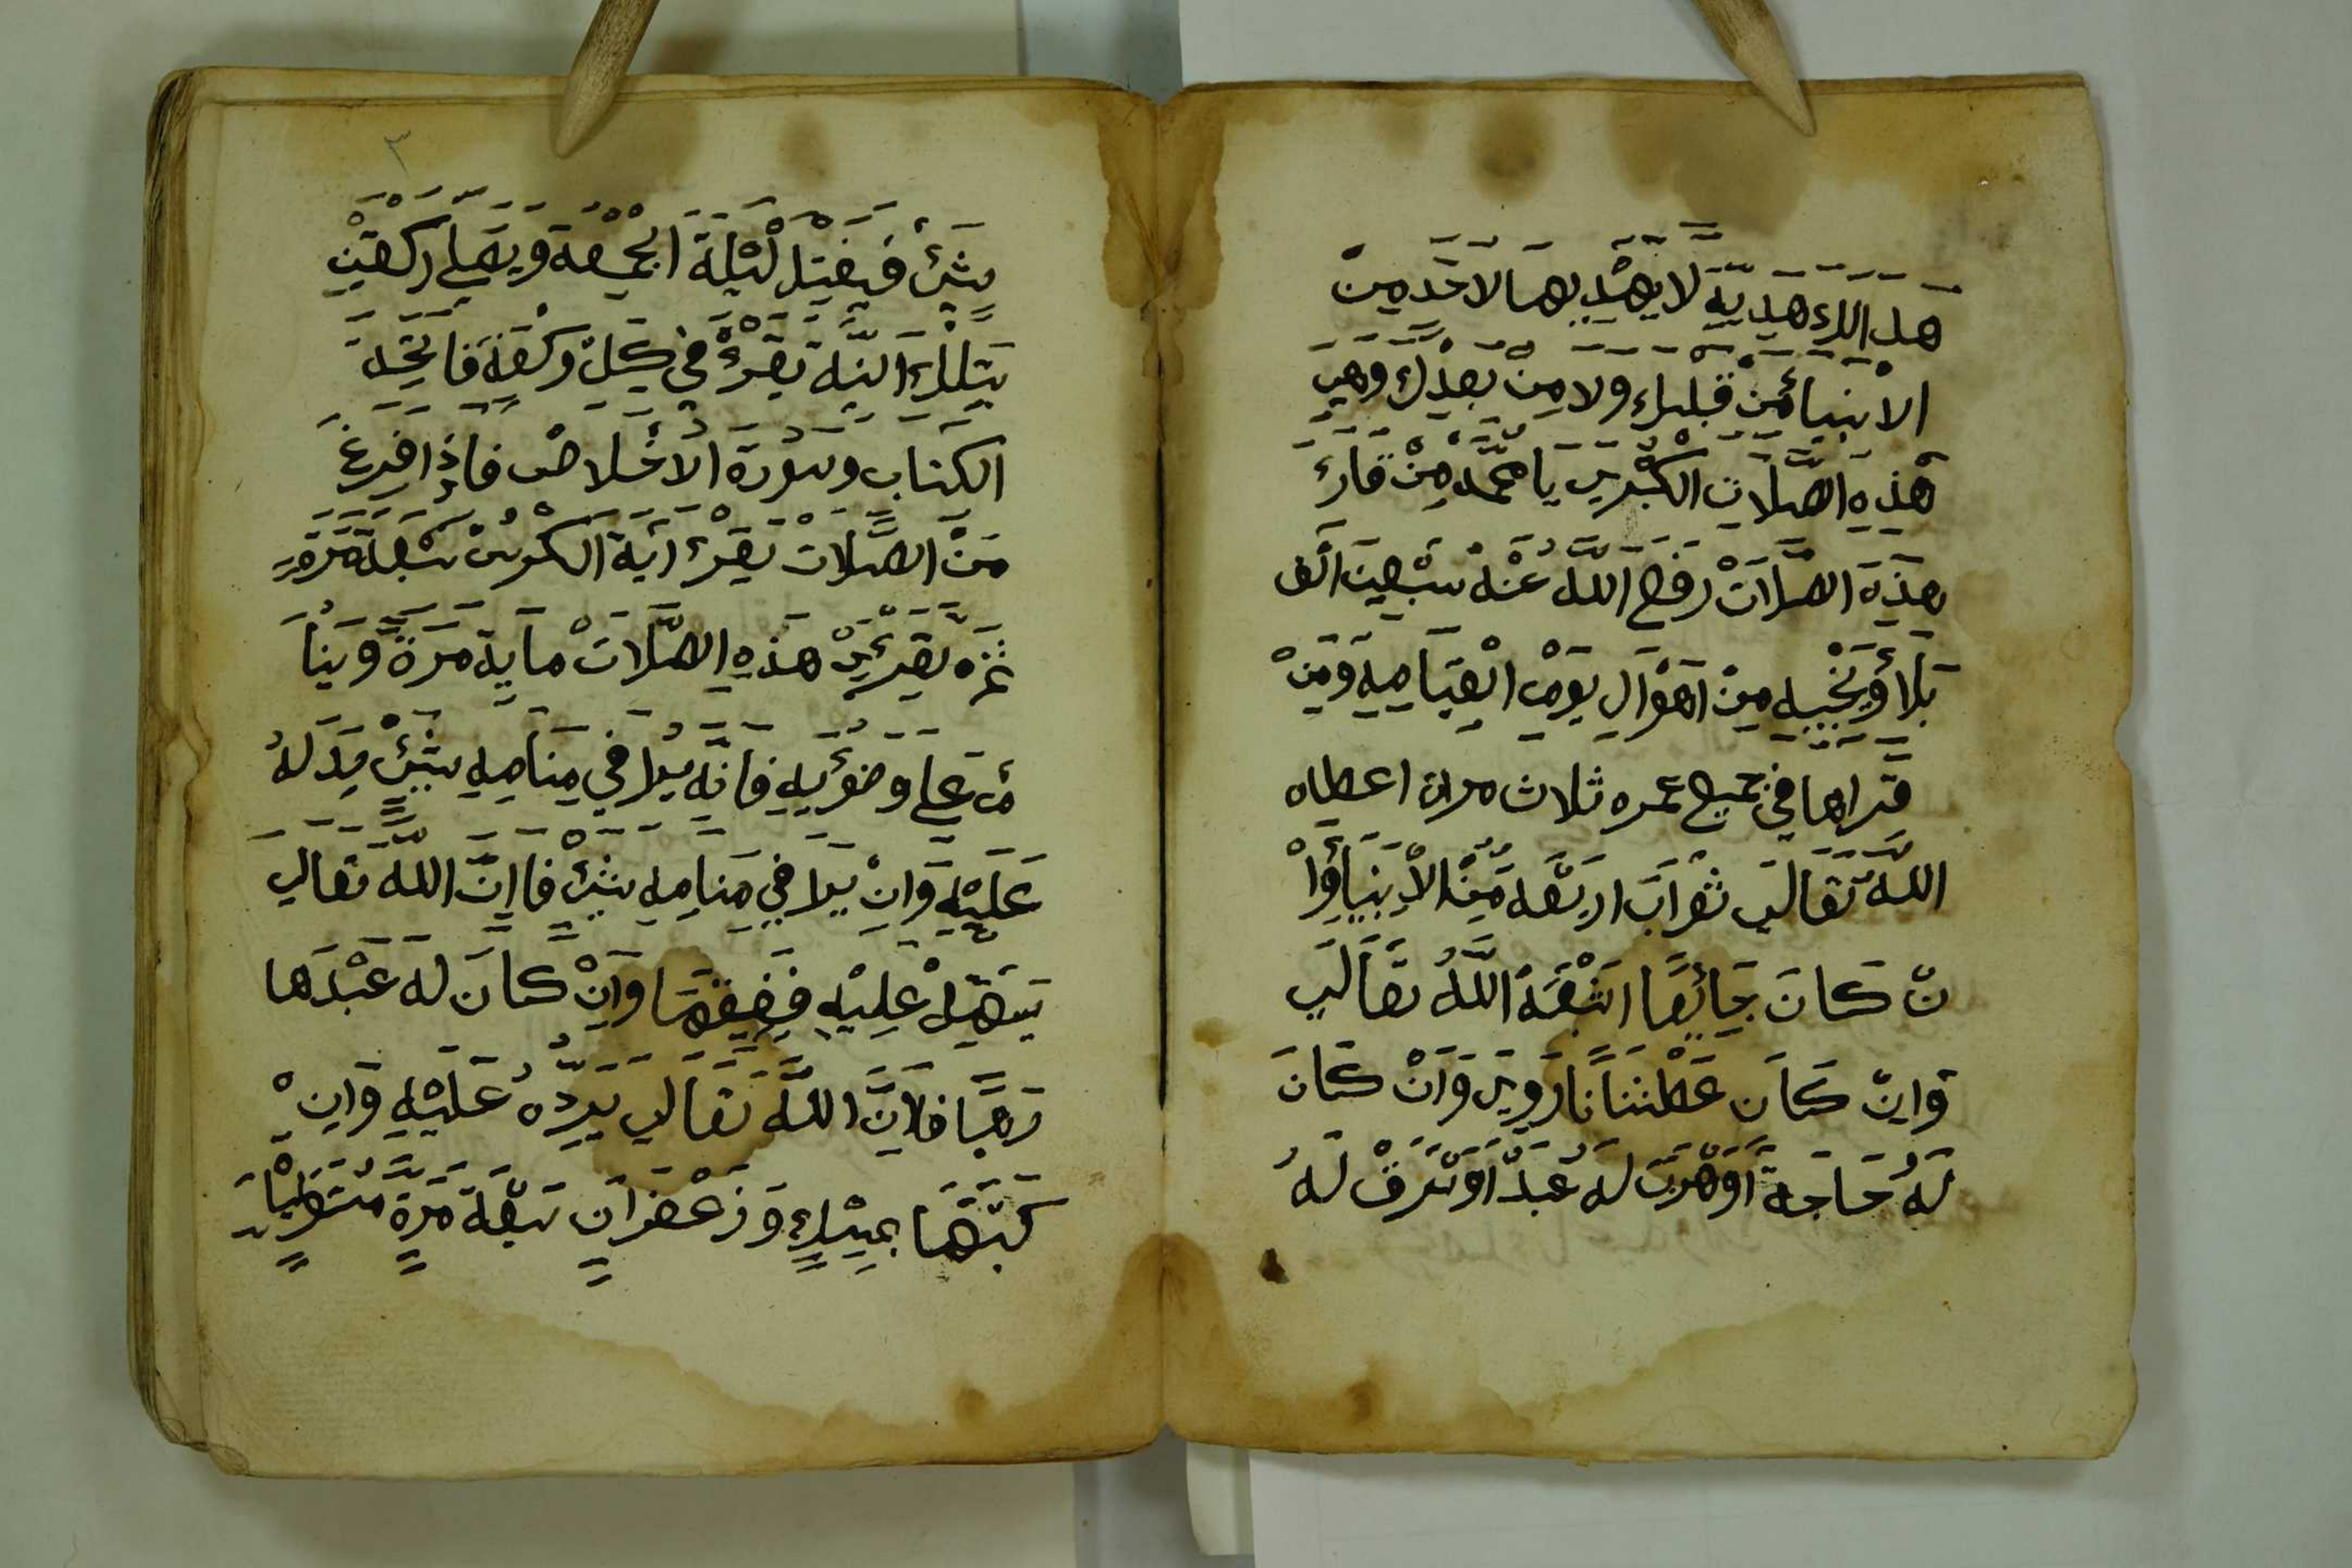 هَدَ اللكَ هَدِيَةِ لَا يَهْدِ بِهَا لاحَد مِنْ
الاَنبياءِ مِنْ قَبْلِكَ ولا مِنْ بَعْدِكَ وهي
هَذِهِ الصَّلَاتِ الكُبْرَيِ يَا مُحَمَّد مِنْ قَارَءَ
هَذِهِ الصَّلَاتْ رَفَعَ اللَّهُ عَنْهُ سَبْعِينَ اَلْف
بَلَاءً وَيُنْجِيهِ مِنْ اَهْوَالِ يَوْمِ الْقِيَامِهِ وَمَنْ
قَراها في جميع عمره ثلاث مرات اعطاه
اللَّهُ تَعَالَي ثَوَابَ ارَبَعَهَ مِنْ الاَنْبِيَاءِ وَاْ
نْ كَانَ جَائِعًا اشْبَعَهُ اللَّهُ تَعَالَي
وَاِنْ كَانَ عَطْشَانًا رَوِيَ وَاَنْ كَانَ
لَهُ حَاجَةً اَوْ هَرَبَ لَهُ عَبْدً اَوْ سَرَقْ لَهُ
٣
شَيْءٍ فَيَغْتِسل لَيْلَةَ الجُمْعَة وَيُصَلِّي رَكْعَتَيْنِ
بِتِلْكَ النِّيَّة يَقْرَءْ فِي كُلِّ رَكْعَةٍ فَاتِحَةَ
الكِتَابِ وَسُورَة الاَخْلاصْ فاذِا فَرِغَ
مَنْ الصَّلَات يَقْرَءْ اَيَةَ الكُرْسْ سَبْعَةَ مَرَّةٍ
ثُمَّه يَقْرَءْ هَذِهِ الصَّلَاتْ مَايَةِ مَرَةً وَيَنَاْ
مُ عَلي وضوُئِهِ فَانَّه يُرَا فِي مَنَامِهِ شَيْءً يَدُ لَهُ
عَلَيْهِ وَانْ يَرَا فِي مَنَامِهِ شَيْءٍ فَاِنَّ اللَّه تَعَالَي
يَسَهِّلْ عَلَيْهِ وَاَنْ كَانَ لَهُ عَبْدَ هَا
رَبًا فَاِنَّ اللَّهَ تَعَالَي يَرُدُّهُ عَلَيْهِ وَاِنْ
كَتَبَهَا بِمِسْكٍ وَزَعْفَرَانٍ سَبْعَةَ مَرَةٍ